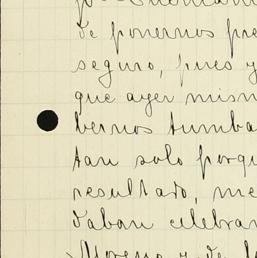 de ponernos pre
seguro, pues y
que ayer mism
bernos tumba
tan solo porqu
resultado, me
daban celebrar
Moreno y de l